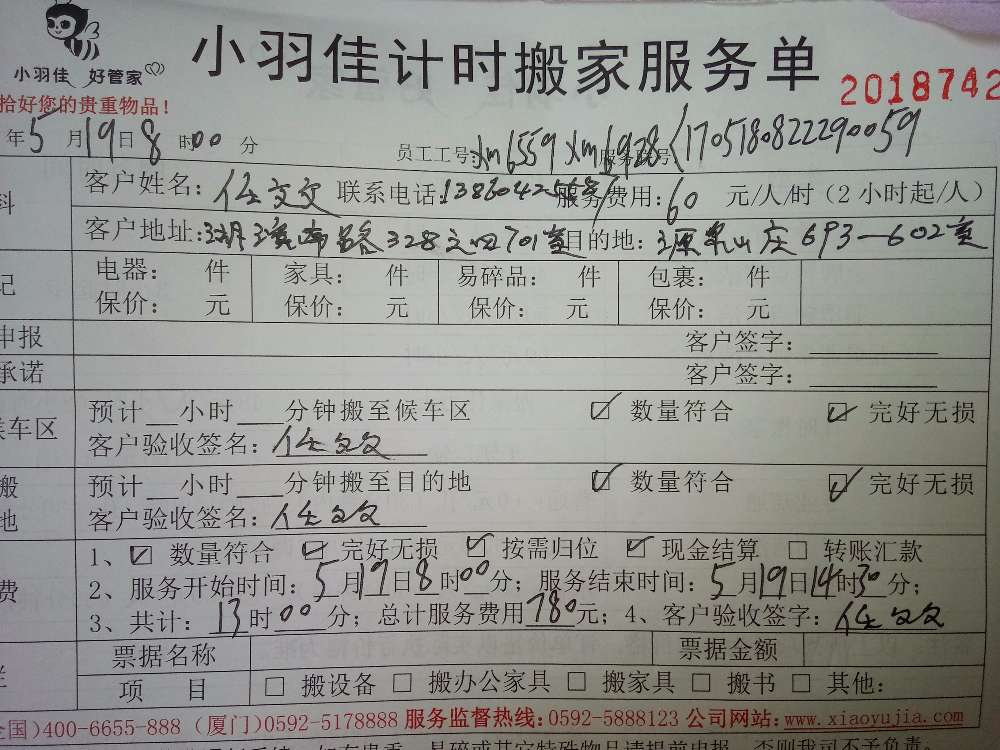 小羽佳 好管家
小羽佳计时搬家服务单
2018742
拾好您的贵重物品！
年5月19日8时00分 员工工号：xm6559 xm6928 服务账号：1705180822290059
料 客户姓名： 联系电话： 服务费用：60元/人/时（2小时起/人）
客户地址：湖滨南路328之四701室 目的地：源泉山庄693—602室
记 电器： 件 家具： 件 易碎品： 件 包裹： 件
保价： 元 保价： 元 保价： 元 保价： 元
申报 客户签字：
承诺 客户签字：
候车区 预计 小时 分钟搬至候车区 ☑ 数量符合 ☑ 完好无损
客户验收签名：
搬 预计 小时 分钟搬至目的地 ☑ 数量符合 ☑ 完好无损
地 客户验收签名：
1、☑ 数量符合 ☑ 完好无损 ☑ 按需归位 ☑ 现金结算 □ 转账汇款
费 2、服务开始时间：5月19日8时00分；服务结束时间：5月19日14时30分；
3、共计：13时00分；总计服务费用780元；4、客户验收签字：
票据名称 票据金额
栏 项 目 □ 搬设备 □ 搬办公家具 □ 搬家具 □ 搬书 □ 其他：
全国)400-6655-888 (厦门)0592-5178888 服务监督热线:0592-5888123 公司网站:www.xiaoyujia.com